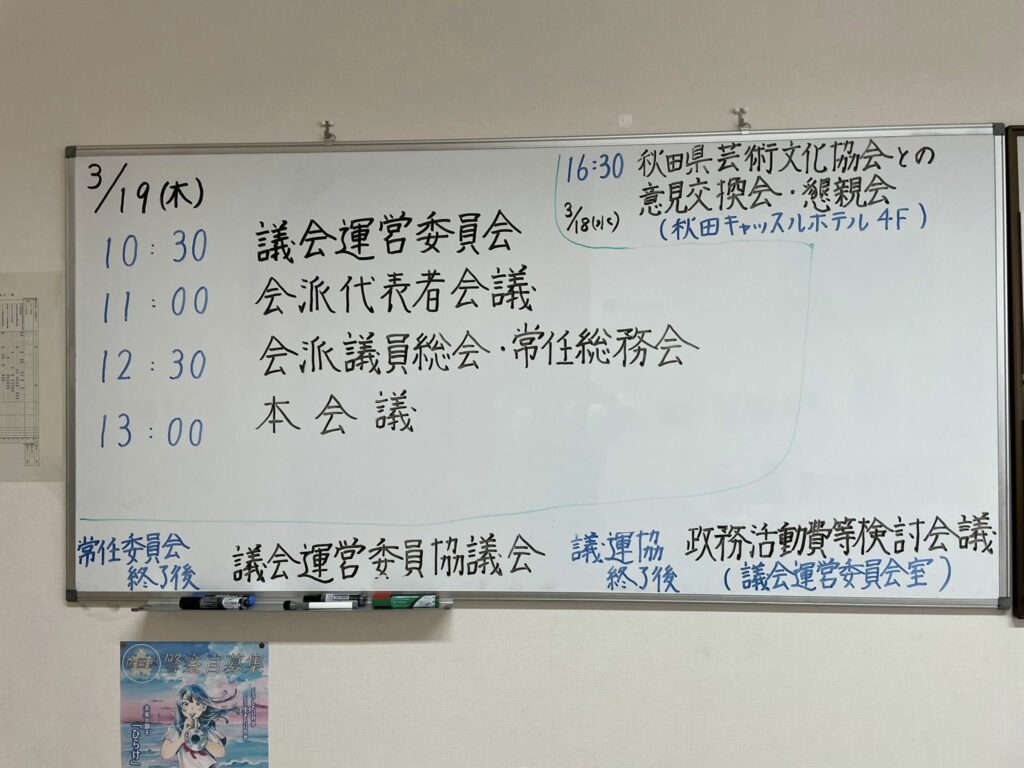 3/19(木)
10:30 議会運営委員会
11:00 会派代表者会議
12:30 会派議員総会・常任総務会
13:00 本会議
16:30 秋田県芸術文化協会との
意見交換会・懇親会
3/18(水)
(秋田キャッスルホテル4F)
常任委員会
終了後
議会運営委員協議会
議運協
終了後
政務活動費等検討会議
(議会運営委員会室)
警察官募集
「ひらけ」